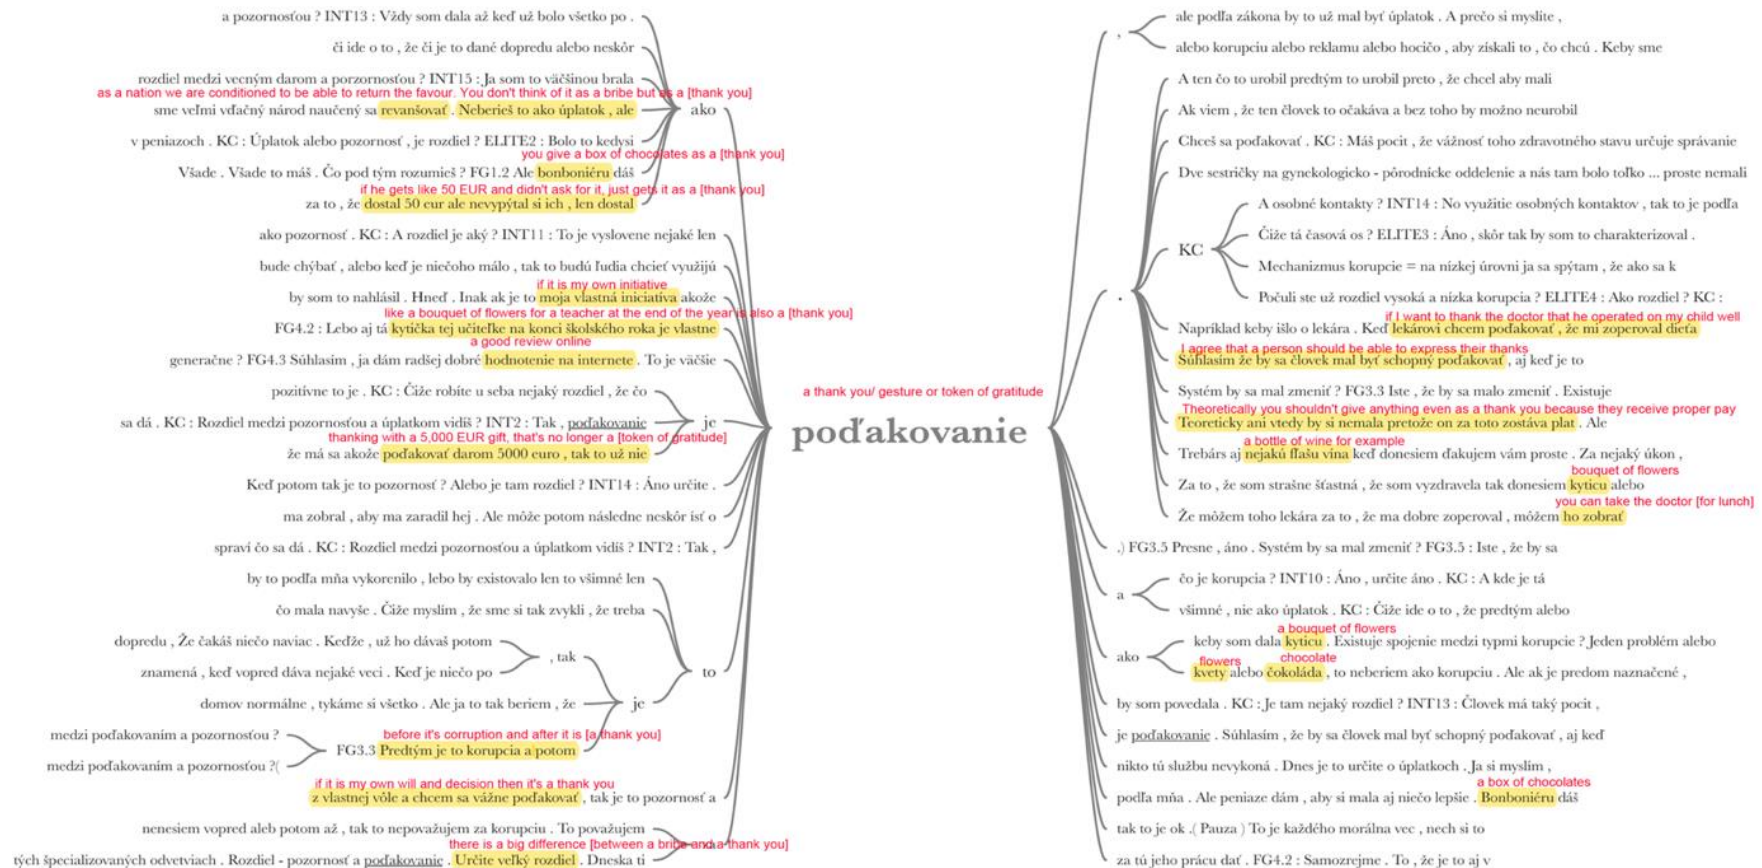 a pozornosťou ? INT13 : Vždy som dala až keď už bolo všetko po .
či ide o to , že či je to dané dopredu alebo neskôr
rozdiel medzi vecným darom a porzornosťou ? INT15 : Ja som to väčšinou brala
as a nation we are conditioned to be able to return the favour. You don't think of it as a bribe but as a [thank you]
sme veľmi vďačný národ naučený sa revanšovať . Neberieš to ako úplatok , ale
ako
v peniazoch . KC : Úplatok alebo pozornosť , je rozdiel ? ELITE2 : Bolo to kedysi
you give a box of chocolates as a [thank you]
Všade . Všade to máš . Čo pod tým rozumieš ? FG1.2 Ale bonboniéru dáš
if he gets like 50 EUR and didn't ask for it, just gets it as a [thank you]
za to , že dostal 50 eur ale nevypýtal si ich , len dostal
ako pozornosť . KC : A rozdiel je aký ? INT11 : To je vyslovene nejaké len
bude chýbať , alebo keď je niečoho málo , tak to budú ľudia chcieť využijú
if it is my own initiative
by som to nahlásil . Hneď . Inak ak je to moja vlastná iniciatíva akože
like a bouquet of flowers for a teacher at the end of the year is also a [thank you]
FG4.2 : Lebo aj tá kytička tej učiteľke na konci školského roka je vlastne
a good review online
generačne ? FG4.3 Súhlasím , ja dám radšej dobré hodnotenie na internete . To je väčšie
pozitívne to je . KC : Čiže robíte u seba nejaký rozdiel , že čo
sa dá . KC : Rozdiel medzi pozornosťou a úplatkom vidíš ? INT2 : Tak , poďakovanie
je
thanking with a 5,000 EUR gift, that's no longer a [token of gratitude]
že má sa akože poďakovať darom 5000 euro , tak to už nie
Keď potom tak je to pozornosť ? Alebo je tam rozdiel ? INT14 : Áno určite .
ma zobral , aby ma zaradil hej . Ale môže potom následne neskôr ísť o
spraví čo sa dá . KC : Rozdiel medzi pozornosťou a úplatkom vidíš ? INT2 : Tak ,
by to podľa mňa vykorenilo , lebo by existovalo len to všimné len
čo mala navyše . Čiže myslím , že sme si tak zvykli , že treba
dopredu , Že čakáš niečo naviac . Keďže , už ho dávaš potom
, tak
znamená , keď vopred dáva nejaké veci . Keď je niečo po
to
domov normálne , tykáme si všetko . Ale ja to tak beriem , že
je
medzi poďakovaním a pozornosťou ?
before it's corruption and after it is [a thank you]
FG3.3 Predtým je to korupcia a potom
medzi poďakovaním a pozornosťou ?(
if it is my own will and decision then it's a thank you
z vlastnej vôle a chcem sa vážne poďakovať , tak je to pozornosť a
nenesiem vopred aleb potom až , tak to nepovažujem za korupciu . To považujem
there is a big difference [between a bribe and a thank you]
tých špecializovaných odvetviach . Rozdiel - pozornosť a poďakovanie . Určite veľký rozdiel . Dneska ti
a thank you/ gesture or token of gratitude
poďakovanie
ale podľa zákona by to už mal byť úplatok . A prečo si myslíte ,
,
alebo korupciu alebo reklamu alebo hocičo , aby získali to , čo chcú . Keby sme
A ten čo to urobil predtým to urobil preto , že chcel aby mali
Ak viem , že ten človek to očakáva a bez toho by možno neurobil
Chceš sa poďakovať . KC : Máš pocit , že vážnosť toho zdravotného stavu určuje správanie
Dve sestričky na gynekologicko - pôrodnícke oddelenie a nás tam bolo toľko ... proste nemali
A osobné kontakty ? INT14 : No využitie osobných kontaktov , tak to je podľa
Čiže tá časová os ? ELITE3 : Áno , skôr tak by som to charakterizoval .
KC
Mechanizmus korupcie = na nízkej úrovni ja sa spýtam , že ako sa k
.
Počuli ste už rozdiel vysoká a nízka korupcia ? ELITE4 : Ako rozdiel ? KC :
if I want to thank the doctor that he operated on my child well
Napríklad keby išlo o lekára . Keď lekárovi chcem poďakovať , že mi zoperoval dieťa
I agree that a person should be able to express their thanks
Súhlasím že by sa človek mal byť schopný poďakovať , aj keď je to
Systém by sa mal zmeniť ? FG3.3 Iste , že by sa malo zmeniť . Existuje
Theoretically you shouldn't give anything even as a thank you because they receive proper pay
Teoreticky ani vtedy by si nemala pretože on za toto zostáva plat . Ale
a bottle of wine for example
Trebárs aj nejakú fľašu vína keď donesiem ďakujem vám proste . Za nejaký úkon ,
bouquet of flowers
Za to , že som strašne šťastná , že som vyzdravela tak donesiem kyticu alebo
you can take the doctor [for lunch]
Že môžem toho lekára za to , že ma dobre zoperoval , môžem ho zobrať
.) FG3.5 Presne , áno . Systém by sa mal zmeniť ? FG3.5 : Iste , že by sa
čo je korupcia ? INT10 : Áno , určite áno . KC : A kde je tá
a
všimné , nie ako úplatok . KC : Čiže ide o to , že predtým alebo
a bouquet of flowers
keby som dala kyticu . Existuje spojenie medzi typmi korupcie ? Jeden problém alebo
ako
flowers chocolate
kvety alebo čokoláda , to neberiem ako korupciu . Ale ak je predom naznačené ,
by som povedala . KC : Je tam nejaký rozdiel ? INT13 : Človek má taký pocit ,
je poďakovanie . Súhlasím , že by sa človek mal byť schopný poďakovať , aj keď
nikto tú službu nevykoná . Dnes je to určite o úplatkoch . Ja si myslím ,
a box of chocolates
podľa mňa . Ale peniaze dám , aby si mala aj niečo lepšie . Bonboniéru dáš
tak to je ok .( Pauza ) To je každého morálna vec , nech si to
za tú jeho prácu dať . FG4.2 : Samozrejme . To , že je to aj v